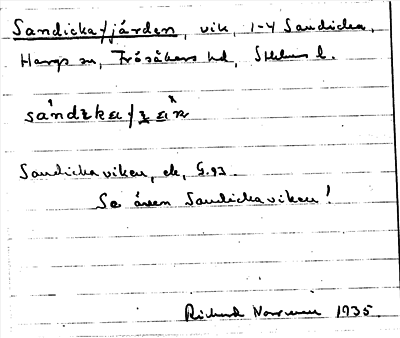 Sandickafjärden, vik, 1-4 Sandicka,
Hargs sn, Frösåkers hd, Sthlms l.
Sandickaviken, ek, G.93.
Se även Sandickaviken!
Richard Norrman 1935.